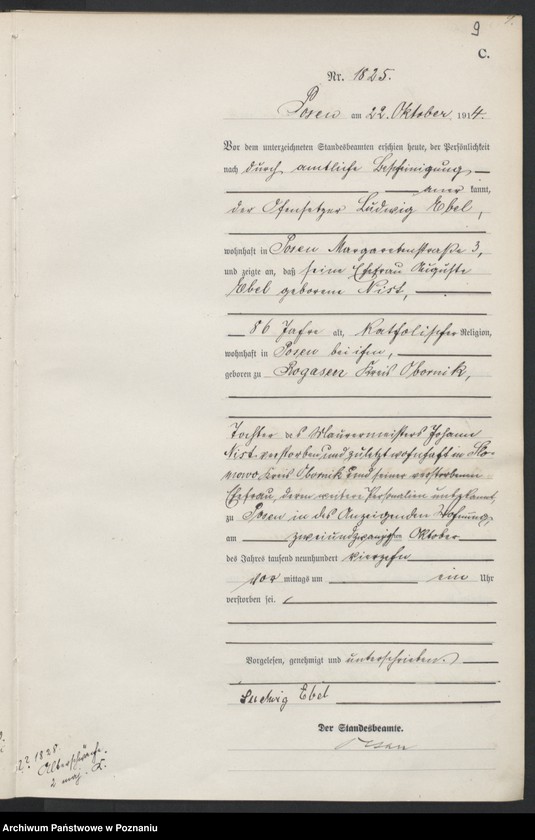 9
C.
Nr. 1825.
Posen am 22. Oktober 1914.
Vor dem unterzeichneten Standesbeamten erschien heute, der Persönlichkeit
nach durch amtliche Bescheinigung
aner kannt,
der Ofensetzer Ludwig Ebel,
wohnhaft in Posen Margaretenstraße 3,
und zeigte an, daß seine Ehefrau Auguste
Ebel geborene Nist,
86 Jahre alt, Katholischer Religion,
wohnhaft in Posen bei ihm,
geboren zu Rogasen Kreis Obornik,
Tochter des Maurermeisters Johann
Nist verstorben und zuletzt wohnhaft in
Kreis Obornik und seiner verstorbenen
Ehefrau, deren weitere Personalien unbekannt,
zu Posen in des Anzeigenden Wohnung,
am zweiundzwanzigsten Oktober
des Jahres tausend neunhundert vierzehn
vor mittags um ein Uhr
verstorben sei.
Vorgelesen, genehmigt und unterschrieben.
Ludwig Ebel
Der Standesbeamte.
1825
Altersschwäche.
Archiwum Państwowe w Poznaniu